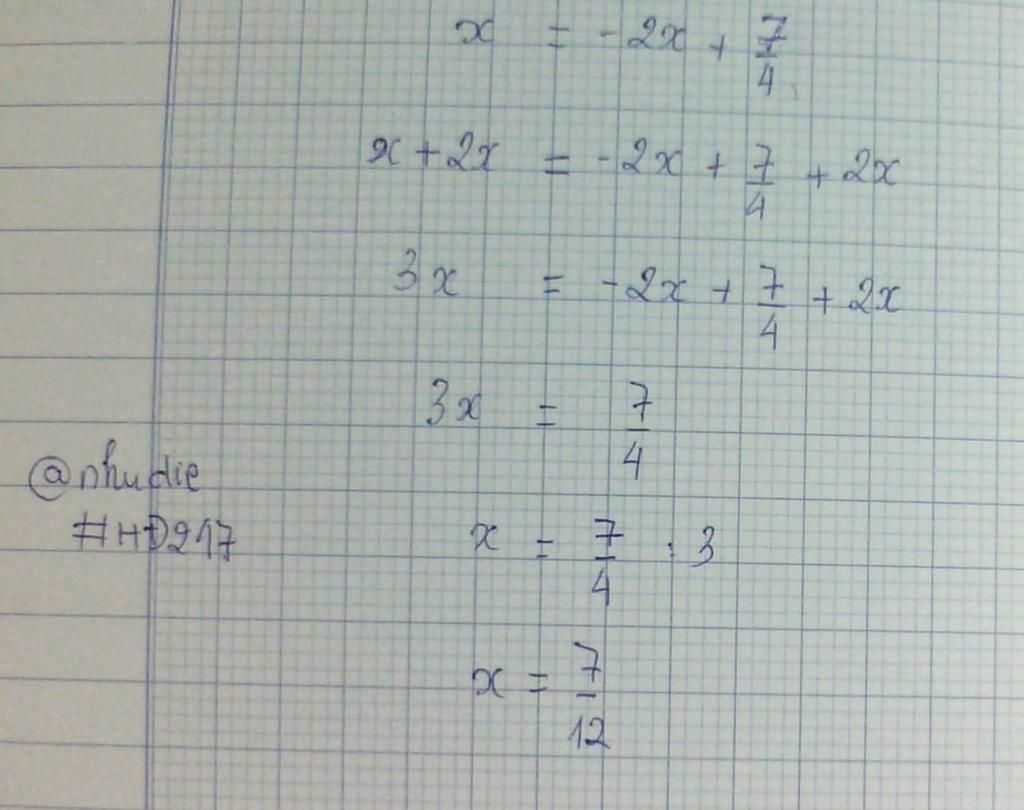 x = -2x + 7/4
x + 2x = -2x + 7/4 + 2x
3x = -2x + 7/4 + 2x
3x = 7/4
@nhudie
#HĐ217
x = 7/4 : 3
x = 7/12